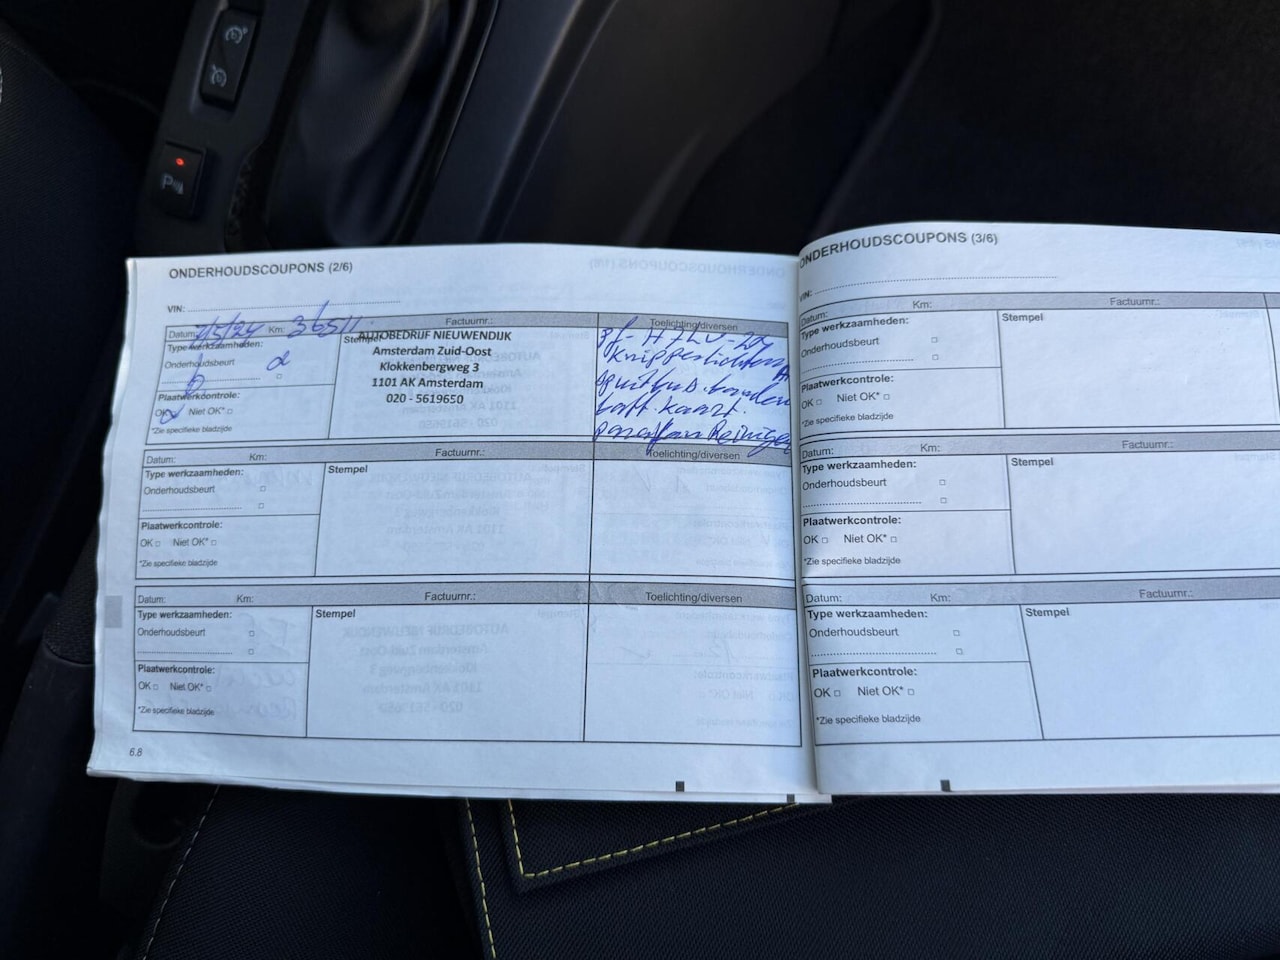 ONDERHOUDSCOUPONS (2/6)
VIN:
Datum: Km: 36511 Factuurnr.: Toelichting/diversen
Type werkzaamheden:
Onderhoudsbeurt
Plaatwerkcontrole:
OK Niet OK*
*Zie specifieke bladzijde
Stempel
AUTOBEDRIJF NIEUWENDIJK
Amsterdam Zuid-Oost
Klokkenbergweg 3
1101 AK Amsterdam
020 - 5619650
Knipperlichten
spuitbus banden
batt. kaart.
Reiniger
Datum: Km: Factuurnr.: Toelichting/diversen
Type werkzaamheden:
Onderhoudsbeurt
Plaatwerkcontrole:
OK Niet OK*
*Zie specifieke bladzijde
Stempel
Datum: Km: Factuurnr.: Toelichting/diversen
Type werkzaamheden:
Onderhoudsbeurt
Plaatwerkcontrole:
OK Niet OK*
*Zie specifieke bladzijde
Stempel
6.8
ONDERHOUDSCOUPONS (3/6)
VIN:
Datum: Km: Factuurnr.:
Type werkzaamheden:
Onderhoudsbeurt
Plaatwerkcontrole:
OK Niet OK*
*Zie specifieke bladzijde
Stempel
Datum: Km: Factuurnr.:
Type werkzaamheden:
Onderhoudsbeurt
Plaatwerkcontrole:
OK Niet OK*
*Zie specifieke bladzijde
Stempel
Datum: Km: Factuurnr.:
Type werkzaamheden:
Onderhoudsbeurt
Plaatwerkcontrole:
OK Niet OK*
*Zie specifieke bladzijde
Stempel